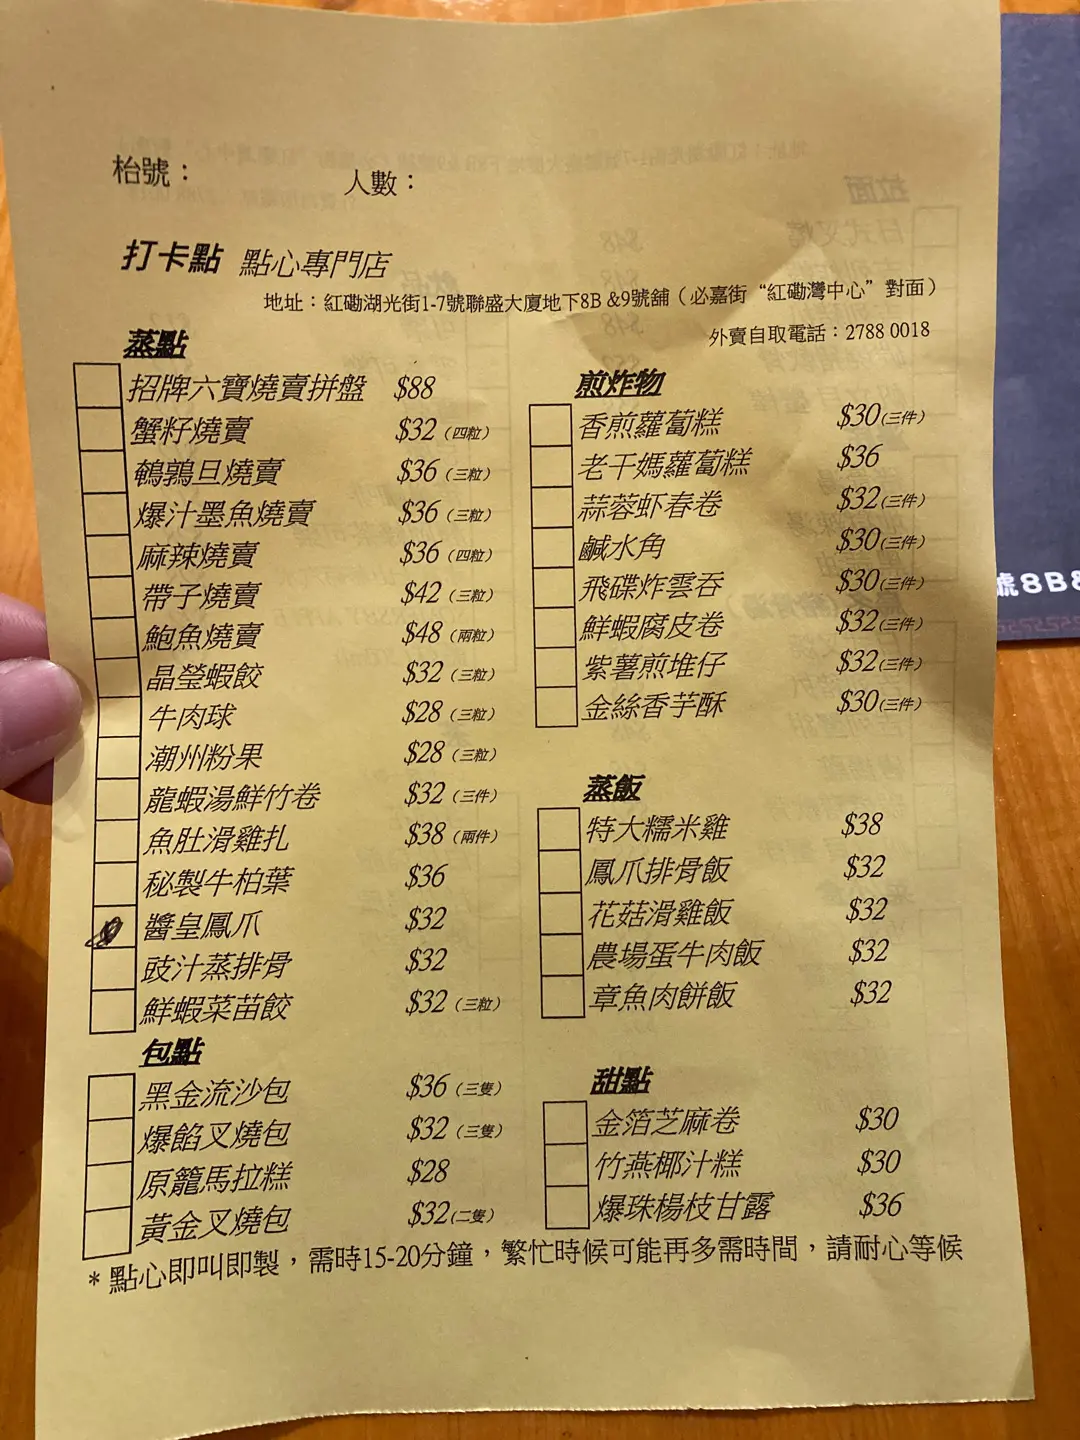 枱號：
人數：
打卡點 點心專門店
地址：紅磡湖光街1-7號聯盛大廈地下8B &9號舖（必嘉街“紅磡灣中心”對面）
外賣自取電話：2788 0018
蒸點
招牌六寶燒賣拼盤 $88
蟹籽燒賣 $32（四粒）
鵪鶉旦燒賣 $36（三粒）
爆汁墨魚燒賣 $36（三粒）
麻辣燒賣 $36（四粒）
帶子燒賣 $42（三粒）
鮑魚燒賣 $48（兩粒）
晶瑩蝦餃 $32（三粒）
牛肉球 $28（三粒）
潮州粉果 $28（三粒）
龍蝦湯鮮竹卷 $32（三件）
魚肚滑雞扎 $38（兩件）
秘製牛柏葉 $36
醬皇鳳爪 $32
豉汁蒸排骨 $32
鮮蝦菜苗餃 $32（三粒）
包點
黑金流沙包 $36（三隻）
爆餡叉燒包 $32（三隻）
原籠馬拉糕 $28
黃金叉燒包 $32(二隻）
煎炸物
香煎蘿蔔糕 $30(三件）
老干媽蘿蔔糕 $36
蒜蓉虾春卷 $32(三件）
鹹水角 $30(三件）
飛碟炸雲吞 $30(三件）
鮮蝦腐皮卷 $32(三件）
紫薯煎堆仔 $32(三件）
金絲香芋酥 $30(三件）
蒸飯
特大糯米雞 $38
鳳爪排骨飯 $32
花菇滑雞飯 $32
農場蛋牛肉飯 $32
章魚肉餅飯 $32
甜點
金箔芝麻卷 $30
竹燕椰汁糕 $30
爆珠楊枝甘露 $36
* 點心即叫即製，需時15-20分鐘，繁忙時候可能再多需時間，請耐心等候
號8B&